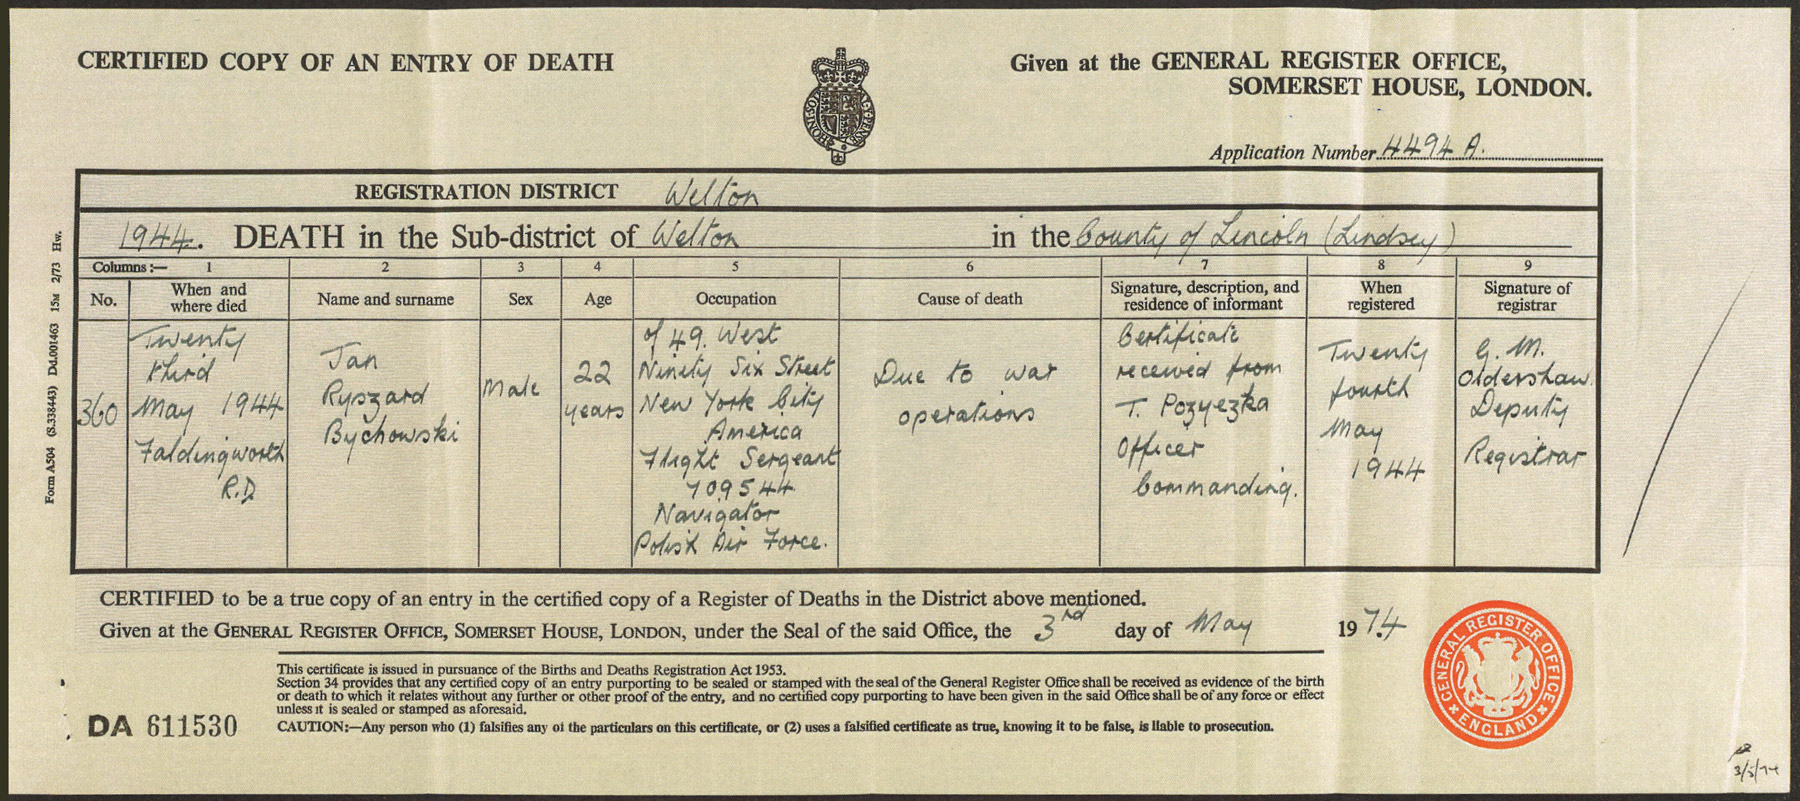 CERTIFIED COPY OF AN ENTRY OF DEATH
Given at the GENERAL REGISTER OFFICE,
SOMERSET HOUSE, LONDON.
Application Number 4494 A.
REGISTRATION DISTRICT Welton
1944. DEATH in the Sub-district of Welton in the County of Lincoln (Lindsey)
Columns :— 1 2 3 4 5 6 7 8 9
No.
When and
where died
Name and surname
Sex
Age
Occupation
Cause of death
Signature, description, and
residence of informant
When
registered
Signature of
registrar
360
Twenty
third
May 1944
Faldingworth
R.D.
Jan
Ryszard
Bychowski
Male
22
years
of 49. West
Ninety Six Street
New York City
America
Flight Sergeant
709544
Navigator
Polish Air Force.
Due to war
operations
Certificate
received from
T. Pozyezka
Officer
Commanding.
Twenty
fourth
May
1944
G. M.
Oldershaw.
Deputy
Registrar
CERTIFIED to be a true copy of an entry in the certified copy of a Register of Deaths in the District above mentioned.
Given at the GENERAL REGISTER OFFICE, SOMERSET HOUSE, LONDON, under the Seal of the said Office, the 3rd day of May 1974
This certificate is issued in pursuance of the Births and Deaths Registration Act 1953.
Section 34 provides that any certified copy of an entry purporting to be sealed or stamped with the seal of the General Register Office shall be received as evidence of the birth
or death to which it relates without any further or other proof of the entry, and no certified copy purporting to have been given in the said Office shall be of any force or effect
unless it is sealed or stamped as aforesaid.
CAUTION:—Any person who (1) falsifies any of the particulars on this certificate, or (2) uses a falsified certificate as true, knowing it to be false, is liable to prosecution.
DA 611530
GENERAL REGISTER OFFICE
ENGLAND
3/5/74
Form A504 (S.338443) Dd.001463 15M 2/73 Hw.